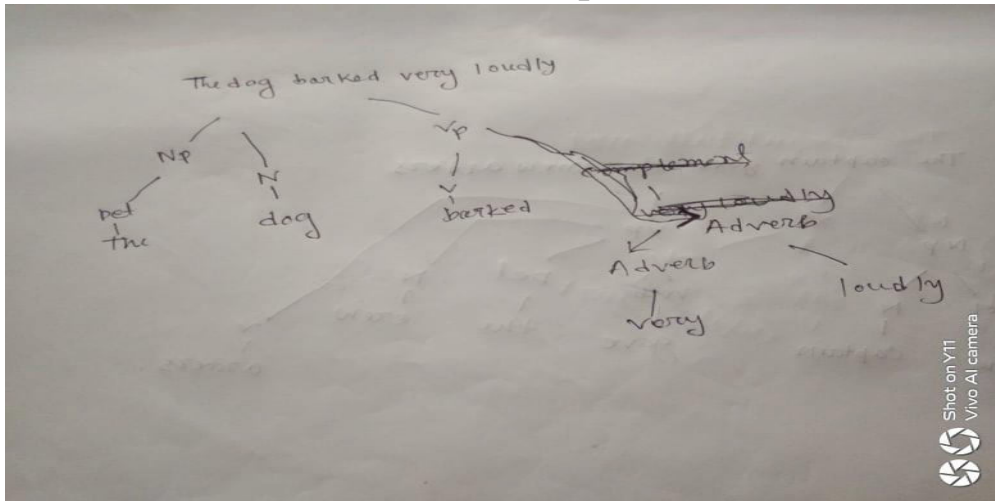 The dog barked very loudly
NP
VP
N
complement
Det
the
dog
V
barked
very loudly
Adverb
Adverb
loudly
very
Shot on Y11
Vivo AI camera